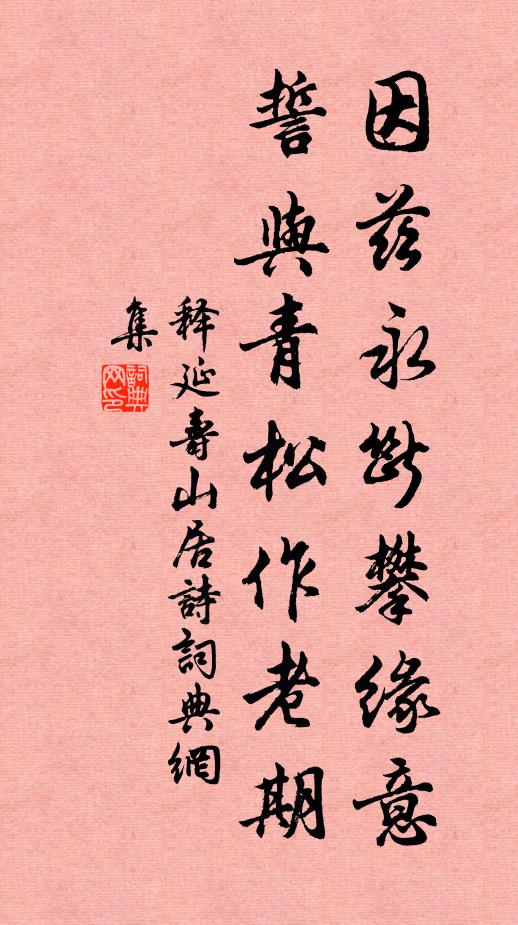 因茲永斷攀緣意
誓與青松作老期
释延壽山居詩詞典網
集
詞典网印